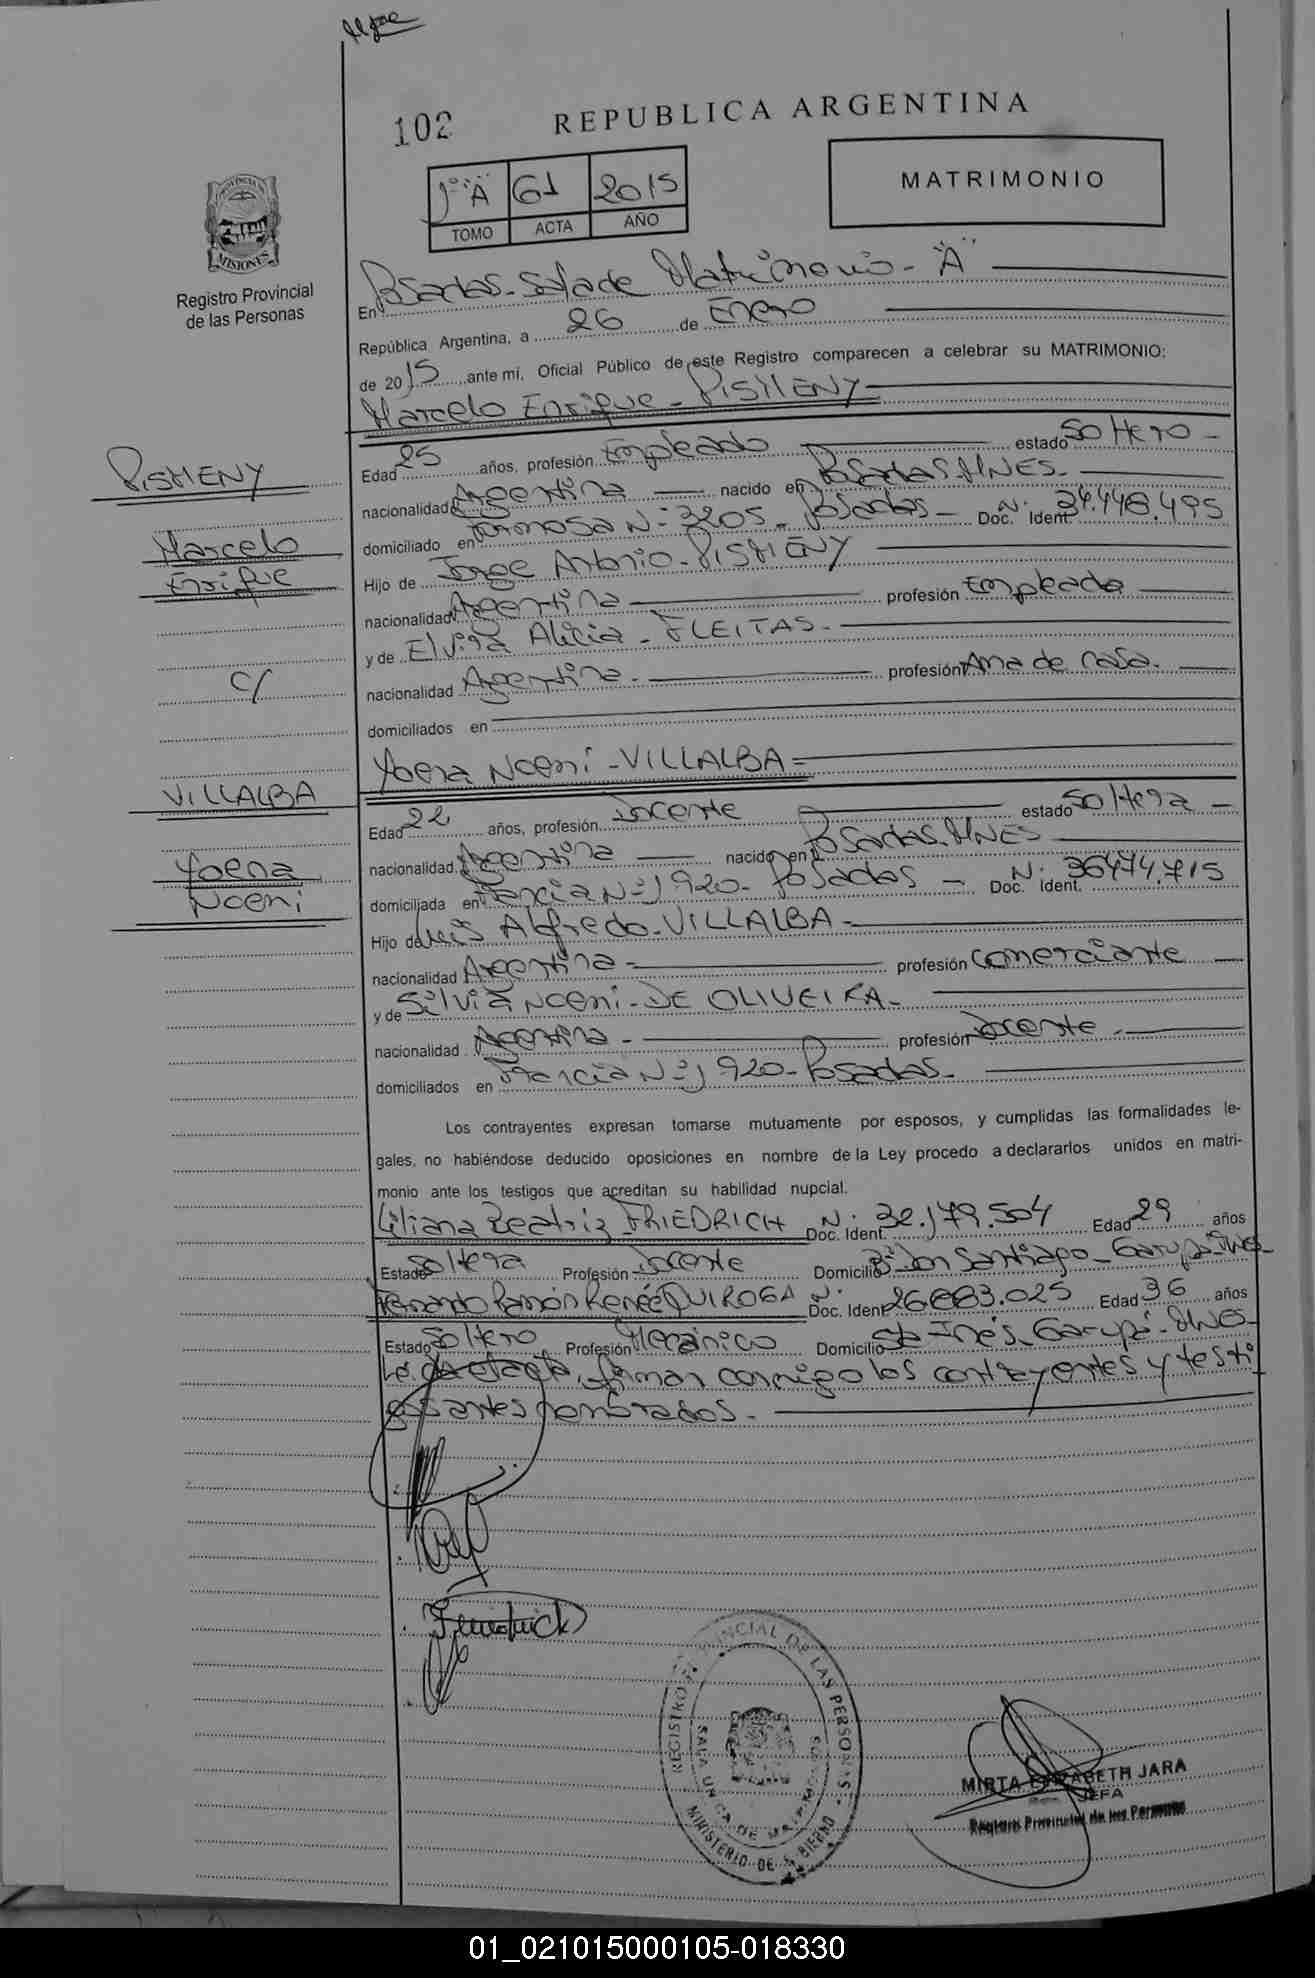 102
REPUBLICA ARGENTINA
1º "A" 61 2015
TOMO ACTA AÑO
MATRIMONIO
PROVINCIA DE
MISIONES
Registro Provincial
de las Personas
En Posadas-Sala de Matrimonio-"A"
República Argentina, a 26 de Enero
de 2015 ante mí, Oficial Público de este Registro comparecen a celebrar su MATRIMONIO:
Marcelo Enrique-PISMENY
PISMENY
Marcelo
Enrique
C/
VILLALBA
Yoena
Noemi
Edad 25 años, profesión Empleado estado Soltero-
nacionalidad Argentina nacido en Posadas.MNES.
domiciliado en Formosa Nº 3205- Posadas- Doc. Ident. Nº 34.448.495
Hijo de Jorge Antonio-PISMENY
nacionalidad Argentina profesión Empleado
y de Elvira Alicia-FLEITAS.
nacionalidad Argentina. profesión Ama de casa.
domiciliados en
Yoena Noemi-VILLALBA=
Edad 22 años, profesión Docente estado Soltera-
nacionalidad Argentina nacido en Posadas.MNES
domiciliada en Francia Nº 1920- Posadas- Doc. Ident. Nº 36474.715
Hijo de Luis Alfredo-VILLALBA-
nacionalidad Argentina- profesión Comerciante
y de Silvia Noemi-DE OLIVEIRA-
nacionalidad Argentina- profesión Docente-
domiciliados en Francia Nº 1920-Posadas-
Los contrayentes expresan tomarse mutuamente por esposos, y cumplidas las formalidades le-
gales, no habiéndose deducido oposiciones en nombre de la Ley procedo a declararlos unidos en matri-
monio ante los testigos que acreditan su habilidad nupcial.
Liliana Beatriz FRIEDRICH Doc. Ident. Nº 32.179.504 Edad 29 años
Estado Soltera Profesión Docente Domicilio Bº Don Santiago-Garupá-Mnes-
Fernando Ramón Renée QUIROGA Doc. Ident. Nº 26883.025 Edad 36 años
Estado Soltero Profesión Mecánico Domicilio Sta Inés-Garupá-MNES-
Leída el acta, firman conmigo los contrayentes y testi
gos antes nombrados.
Friedrich
REGISTRO PROVINCIAL DE LAS PERSONAS
SALA UNICA DE MATRIMONIOS
MINISTERIO DE GOBIERNO
MIRTA ELIZABETH JARA
JEFA
Registro Provincial de las Personas
01_021015000105-018330